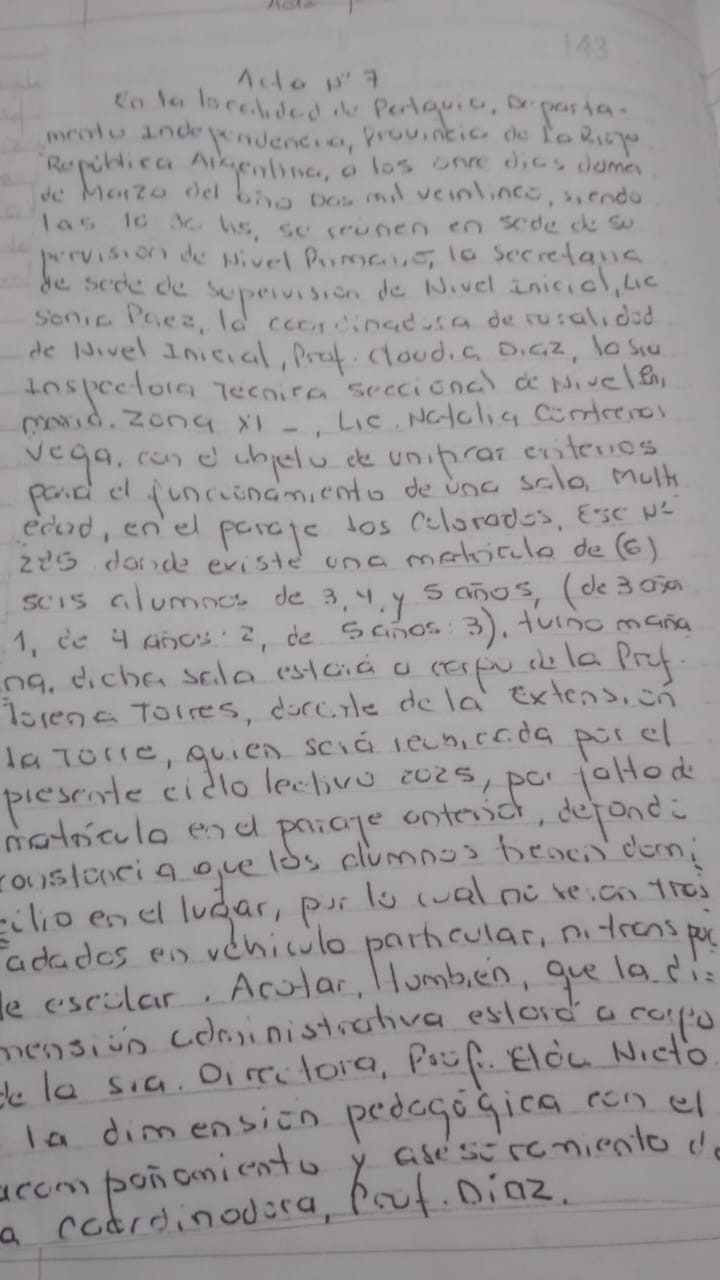 143
Acta N° 7
En la localidad de Patquia, Departa-
mento Independencia, Provincia de La Rioja
República Argentina, a los once dias del mes
de Marzo del año Dos mil veinticinco, siendo
las 10 hs, se reunen en sede de Su
pervisión de Nivel Primario, la secretaria
de sede de supervisión de Nivel Inicial, Lic
Sonia Paez, la coordinadora de ruralidad
de Nivel Inicial, Prof. Claudia Diaz, la Sra
Inspectora Tecnica seccional de Nivel Pri,
mario. Zona XI -, Lic. Natalia Contreras
Vega, con el objeto de unificar criterios
para el funcionamiento de una sala, multi
edad, en el paraje los Colorados, Esc N°
donde existe una matricula de (6)
seis alumnos de 3, 4, y 5 años, (de 3 años
1, de 4 años: 2, de 5 años: 3), turno maña
na, dicha sala estará a cargo de la Prof.
Lorena Torres, docente de la Extensión
la Torre, quien será reubicada por el
presente ciclo lectivo 2025, por falta de
matrícula en el paraje anterior, dejando
constancia que los alumnos tienen domi
cilio en el lugar, por lo cual no serian tras
ladados en vehiculo particular, ni transpor
te escolar. Aclarar, tambien, que la di=
mensión administrativa estará a cargo
de la Sra. Directora, Prof. Nieto
la dimensión pedagógica con el
acompañamiento y asesoramiento de
a coordinadora, Prof. Diaz.